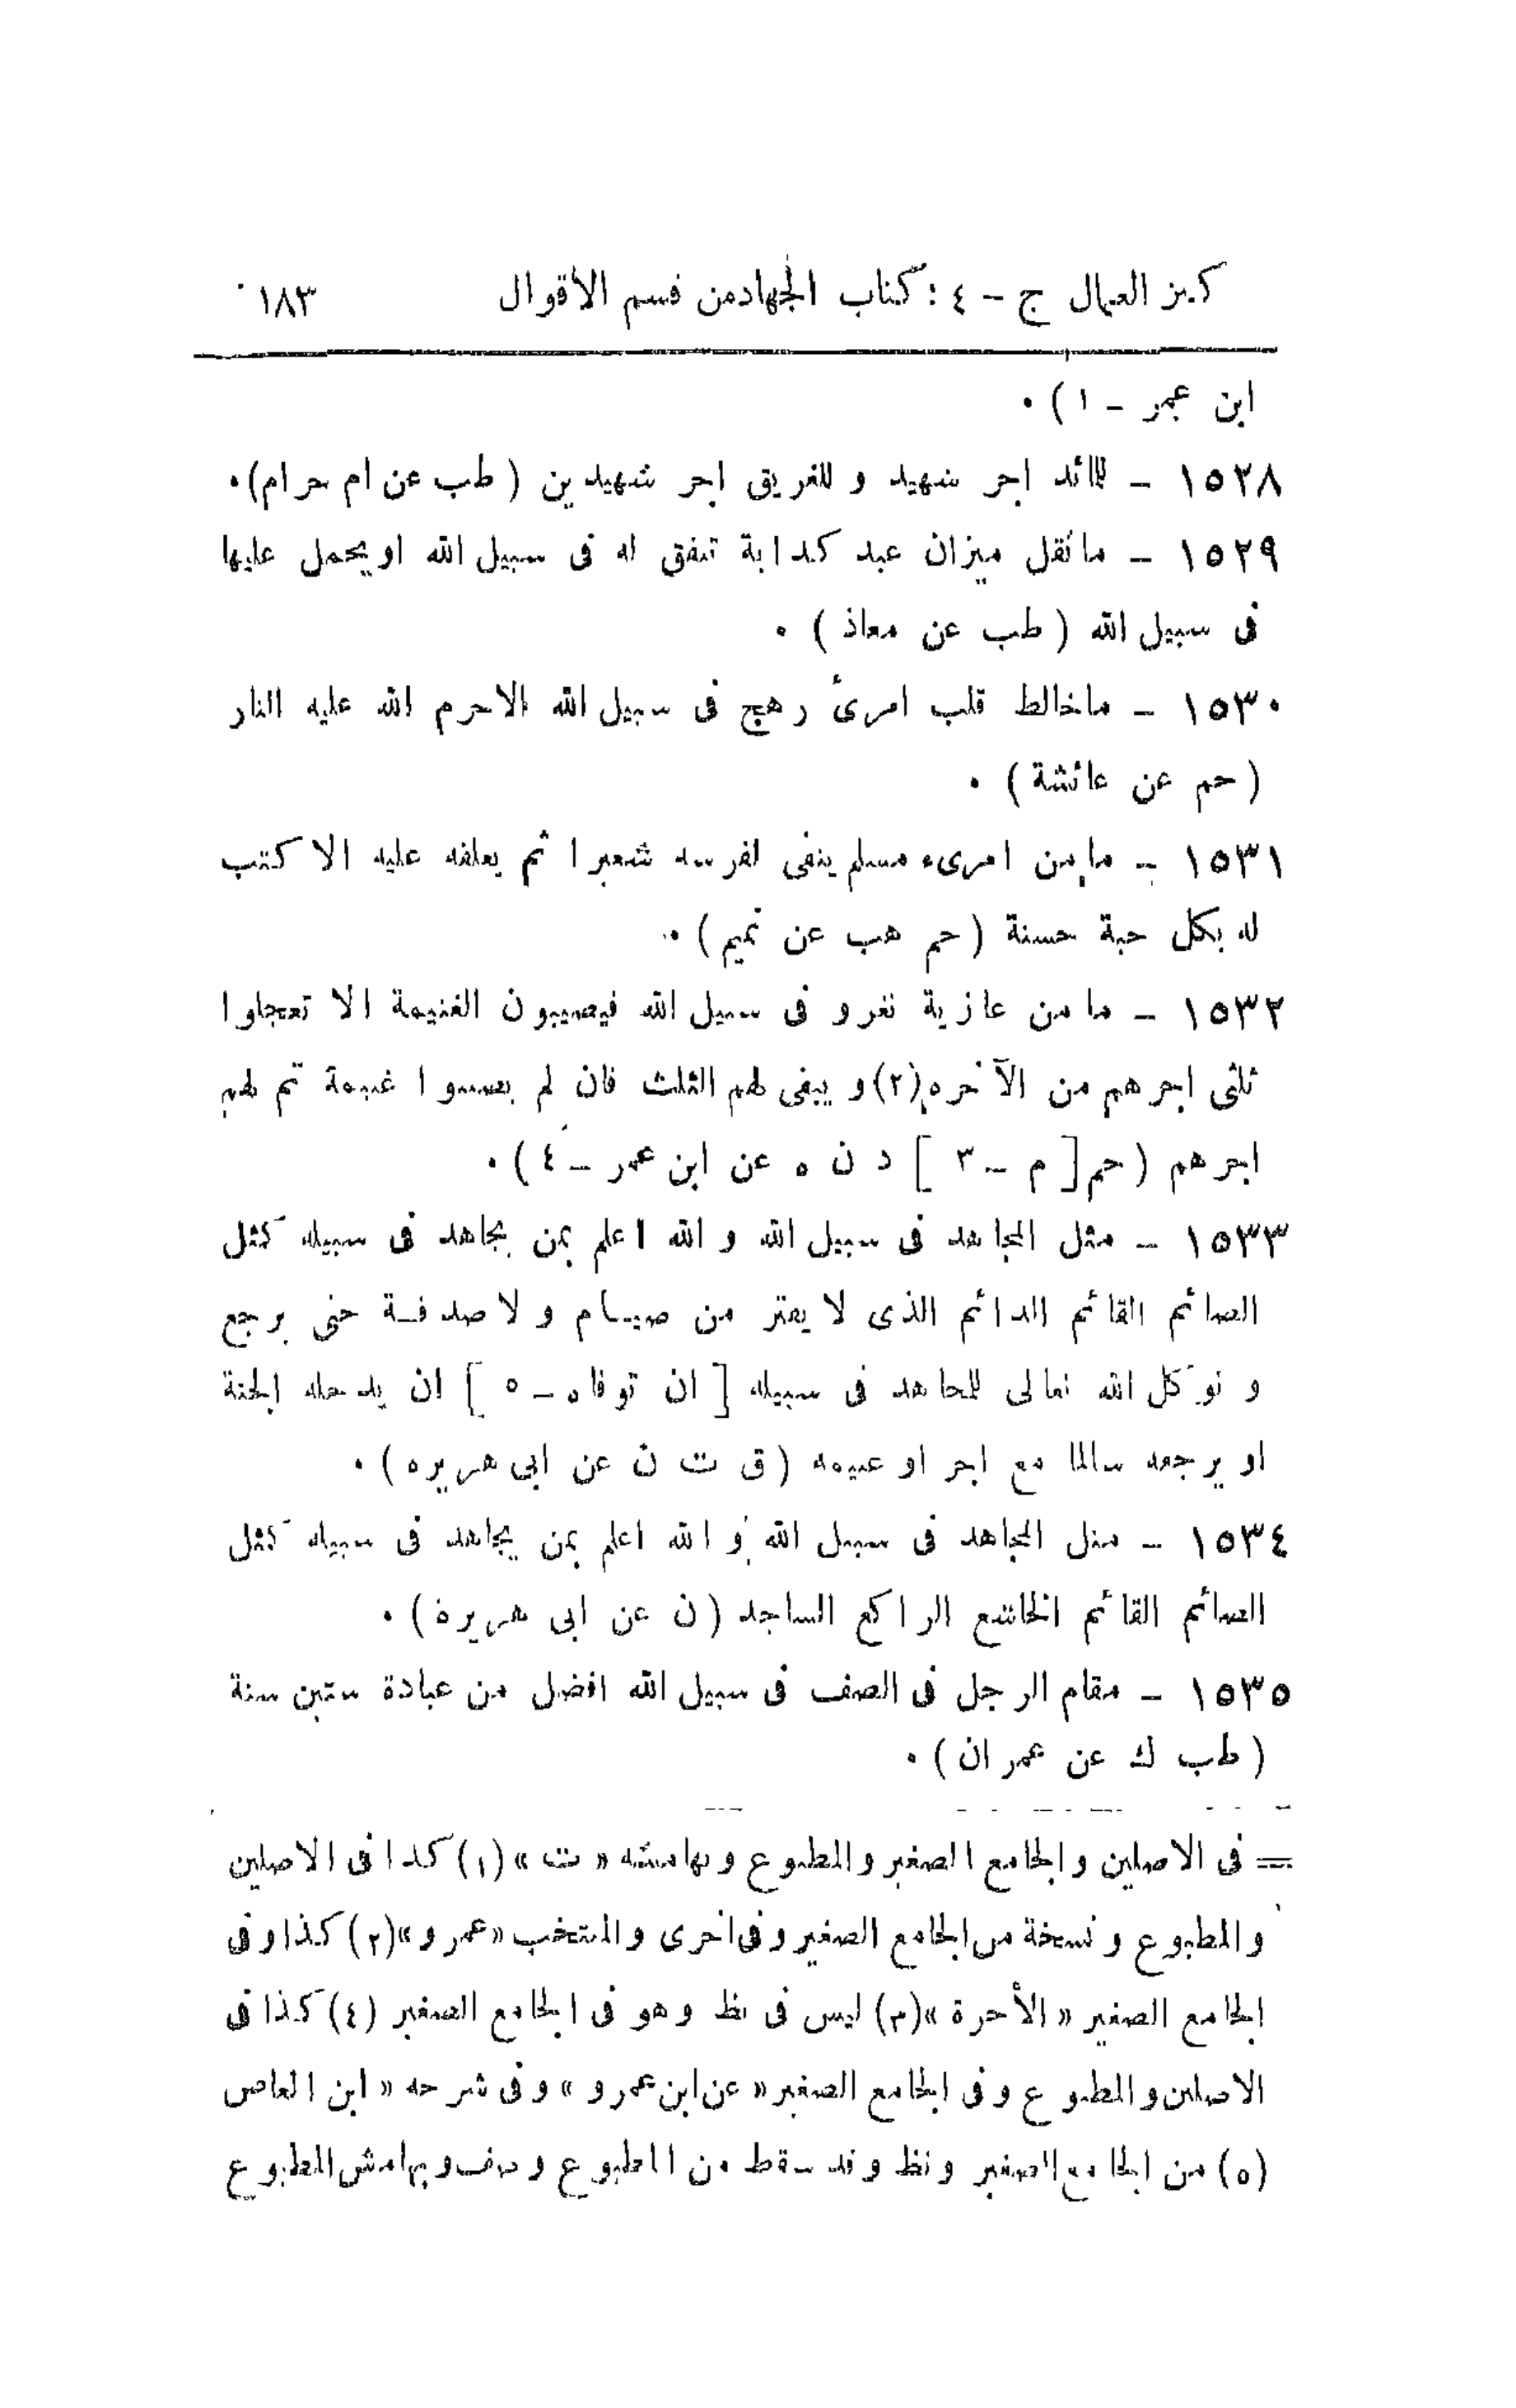 كنز العمال ج - ٤ : كتاب الجهاد من قسم الأقوال ١٨٣
ابن عمر - ١ ) .
١٥٢٨ - للمائد اجر شهيد و للغريق اجر شهيدين ( طب عن ام حرام ) .
١٥٢٩ - ما ثقل ميزان عبد كدابة تنفق له فى سبيل الله او يحمل عليها
فى سبيل الله ( طب عن معاذ ) .
١٥٣٠ - ما خالط قلب امرئ رهج فى سبيل الله الا حرم الله عليه النار
( حم عن عائشة ) .
١٥٣١ - ما من امرىء مسلم ينقى لفرسه شعيرا ثم يعلفه عليه الا كتب
له بكل حبة حسنة ( حم هب عن تميم ) .
١٥٣٢ - ما من غازية تغزو فى سبيل الله فيصيبون الغنيمة الا تعجلوا
ثلثى اجرهم من الآخره (٢) و يبقى لهم الثلث فان لم يصيبوا غنيمة تم لهم
اجرهم ( حم [ م - ٣ ] د ن ه عن ابن عمر - ٤ ) .
١٥٣٣ - مثل المجاهد فى سبيل الله و الله اعلم بمن يجاهد فى سبيله كمثل
الصائم القائم الدائم الذى لا يفتر من صيام و لا صدقة حتى يرجع
و توكل الله تعالى للمجاهد فى سبيله [ ان توفاه - ٥ ] ان يدخله الجنة
او يرجعه سالما مع اجر او غنيمه ( ق ت ن عن ابى هريره ) .
١٥٣٤ - مثل المجاهد فى سبيل الله و الله اعلم بمن يجاهد فى سبيله كمثل
الصائم القائم الخاشع الراكع الساجد ( ن عن ابى هريرة ) .
١٥٣٥ - مقام الرجل فى الصف فى سبيل الله افضل من عبادة ستين سنة
( طب ك عن عمران ) .
= فى الاصلين و الجامع الصغير و المطبوع و بهامشه « ت » (١) كذا فى الاصلين
و المطبوع و نسخة من الجامع الصغير و فى اخرى و المنتخب « عمرو » (٢) كذا و فى
الجامع الصغير « الأخرة » (٣) ليس فى نظ و هو فى الجامع الصغير (٤) كذا فى
الاصلين و المطبوع و فى الجامع الصغير « عن ابن عمرو » و فى شرحه « ابن العاص
(٥) من الجامع الصغير و نظ و قد سقط من المطبوع و صف و بهامش المطبوع